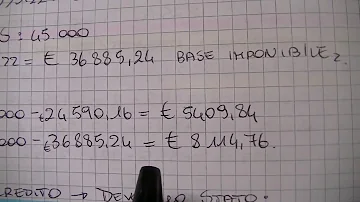 S: 45.000
22 = € 36885,24 BASE IMPONIBILE2
000 - €24590,16 = € 5409,84
000 - €36885,24 = € 8114,76.
REDITO → STATO: